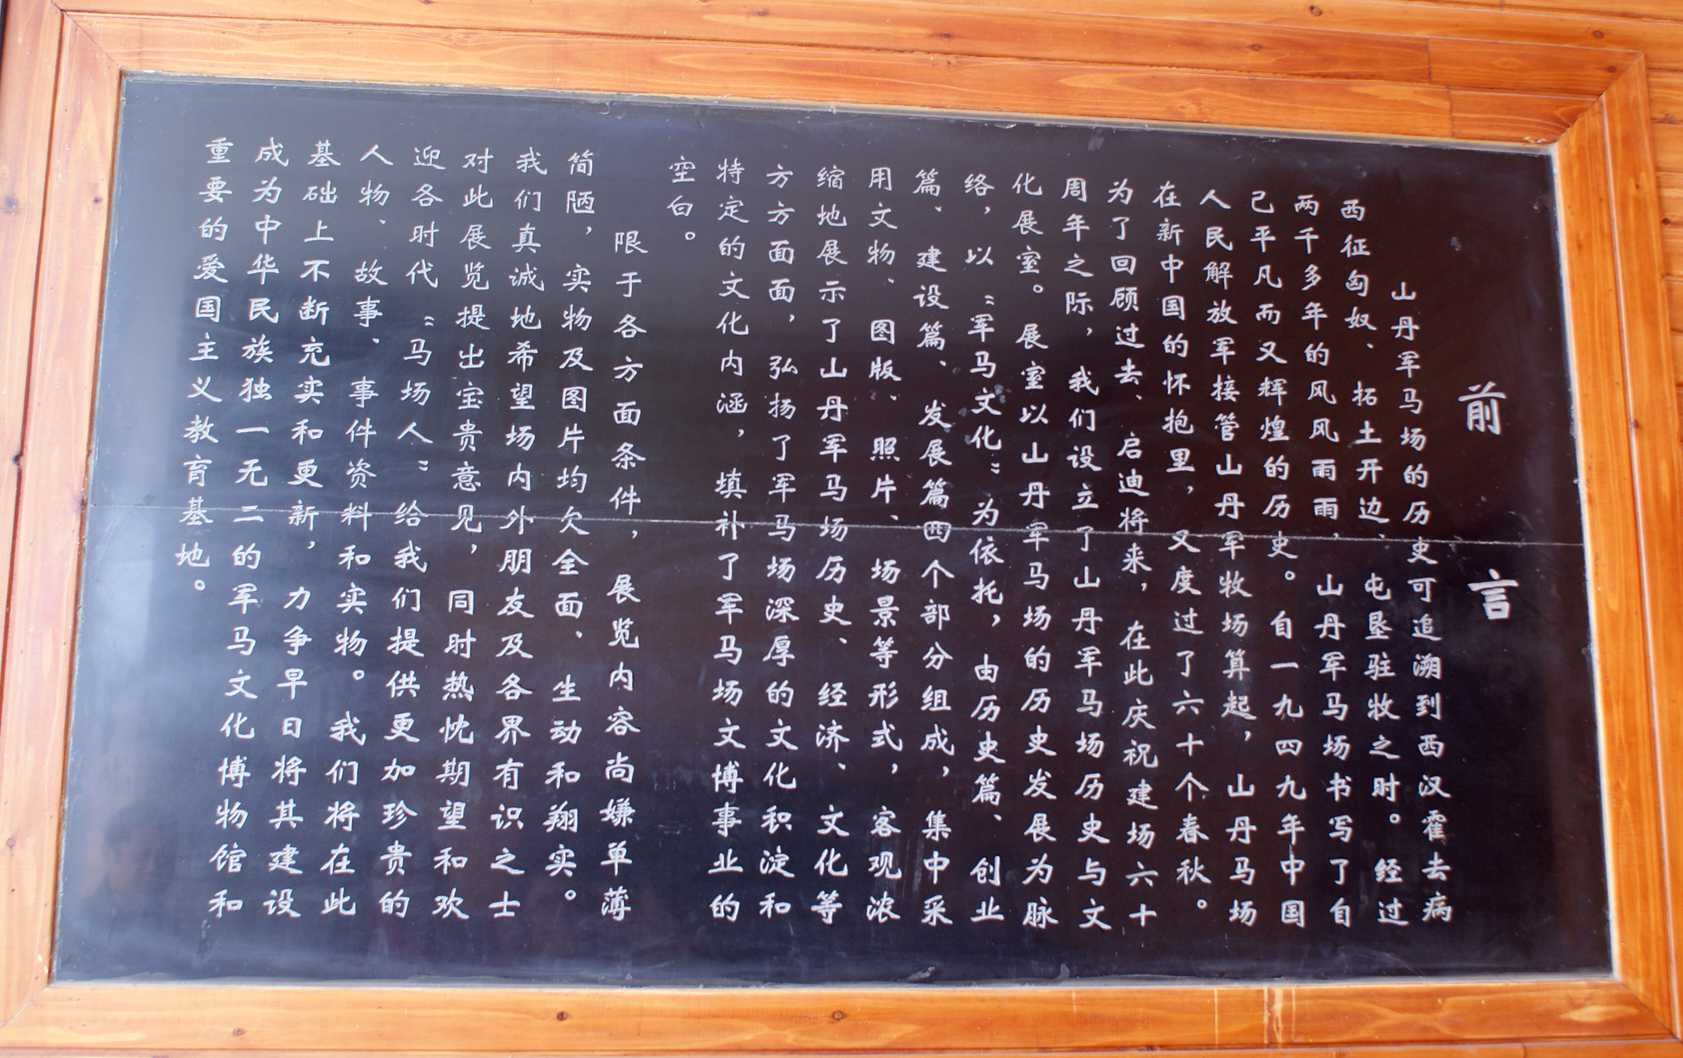 前言
山丹军马场的历史可追溯到西汉霍去病
西征匈奴、拓土开边、屯垦驻牧之时。经过
两千多年的风风雨雨，山丹军马场书写了自
己平凡而又辉煌的历史。自一九四九年中国
人民解放军接管山丹军牧场算起，山丹马场
在新中国的怀抱里，又度过了六十个春秋。
为了回顾过去、启迪将来，在此庆祝建场六十
周年之际，我们设立了山丹军马场历史与文
化展室。展室以山丹军马场的历史发展为脉
络，以“军马文化”为依托，由历史篇、创业
篇、建设篇、发展篇四个部分组成，集中采
用文物、图版、照片、场景等形式，客观浓
缩地展示了山丹军马场历史、经济、文化等
方方面面，弘扬了军马场深厚的文化积淀和
特定的文化内涵，填补了军马场文博事业的
空白。
限于各方面条件，展览内容尚嫌单薄
简陋，实物及图片均欠全面、生动和翔实。
我们真诚地希望场内外朋友及各界有识之士
对此展览提出宝贵意见，同时热忱期望和欢
迎各时代“马场人”给我们提供更加珍贵的
人物、故事、事件资料和实物。我们将在此
基础上不断充实和更新，力争早日将其建设
成为中华民族独一无二的军马文化博物馆和
重要的爱国主义教育基地。